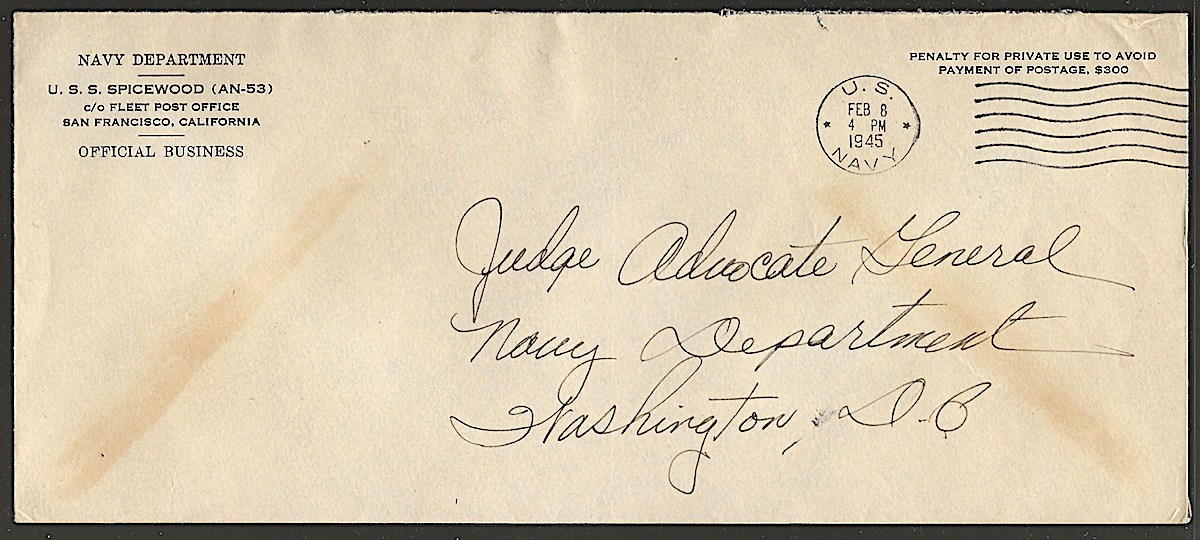 NAVY DEPARTMENT
U. S. S. SPICEWOOD (AN-53)
C/O FLEET POST OFFICE
SAN FRANCISCO, CALIFORNIA
OFFICIAL BUSINESS
PENALTY FOR PRIVATE USE TO AVOID
PAYMENT OF POSTAGE, $300
U. S.
FEB 8
4 PM
1945
NAVY
Judge Advocate General
Navy Department
Washington, D.C